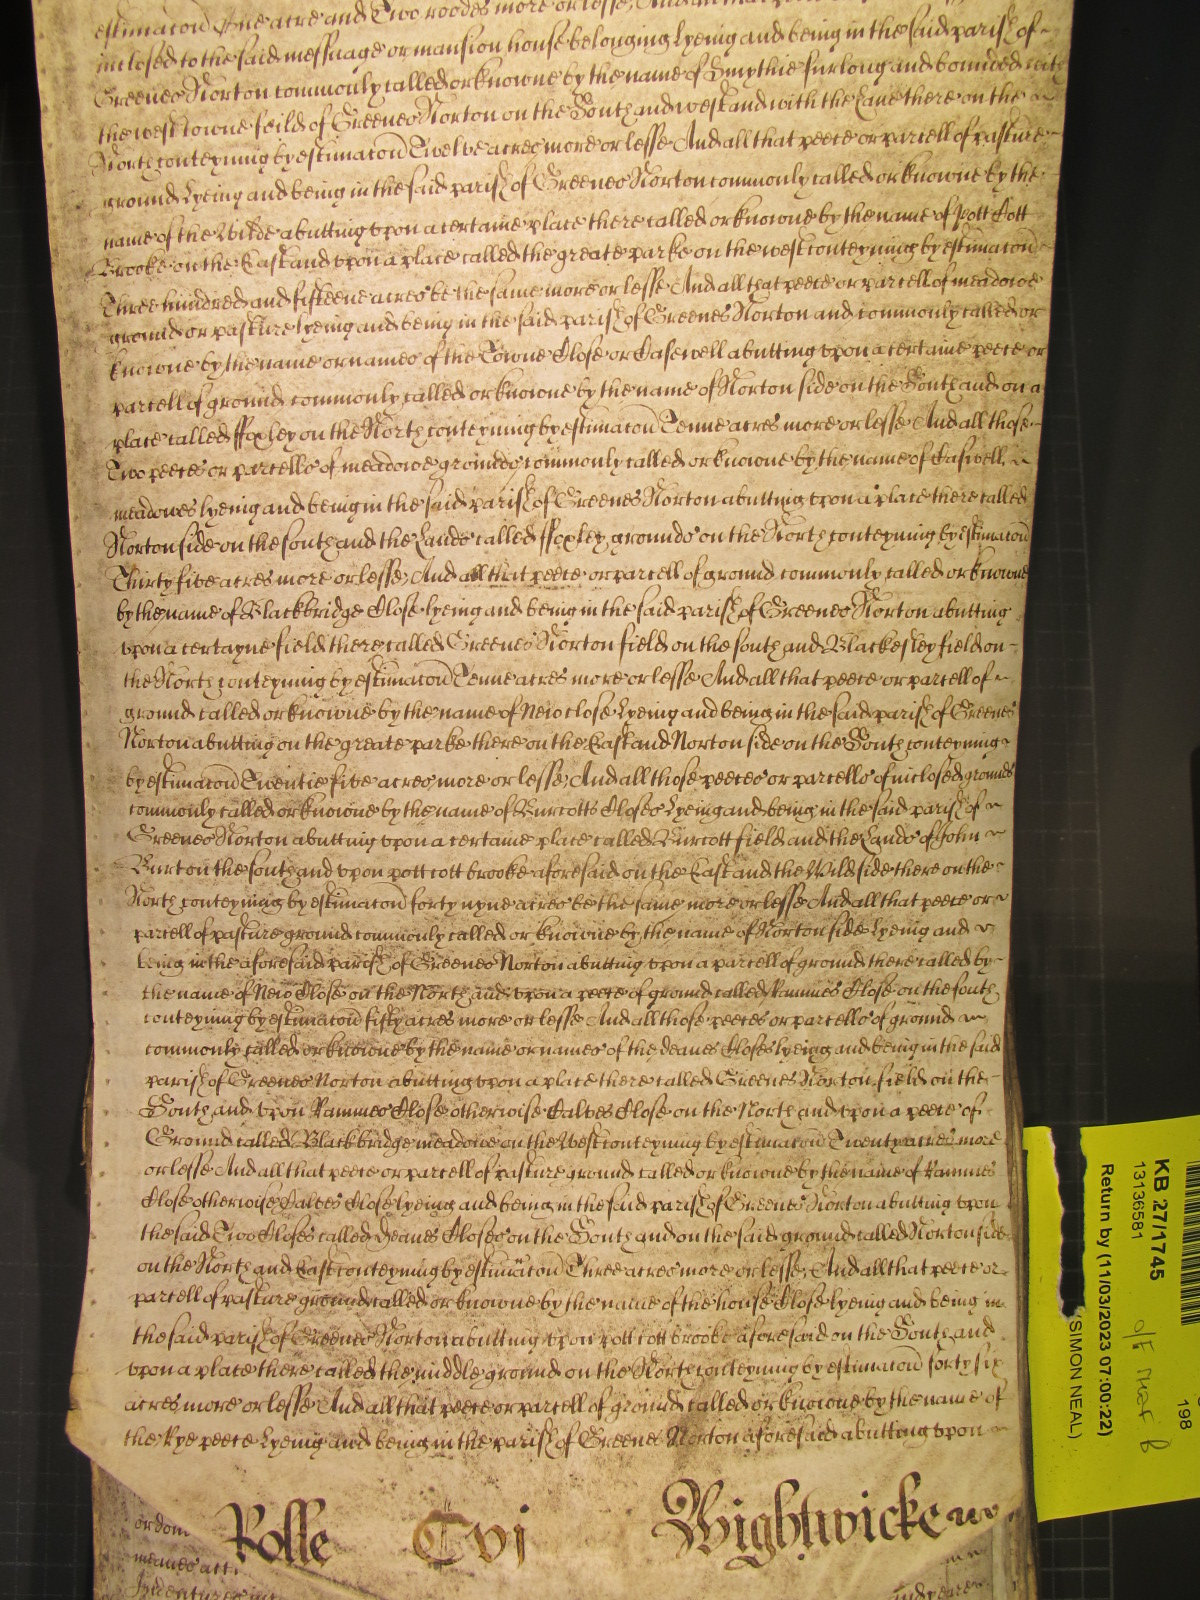 estimacon One acre and Two roodes more or lesse, And all that
inclosed to the said messuage or mansion house belonging lyeing and being in the said parish of
Greenes Norton commonly called or knowne by the name of Smythie furlong and bounded with
the west towne feild of Greenes Norton on the South and west and with the Lane there on the
North conteyning by estimacon Twelve acres more or lesse And all that peece or parcell of pasture
ground Lyeing and being in the said parish of Greenes Norton commonly called or knowne by the
name of the Wilde abutting vpon a certaine place there called or knowne by the name of Pott Cott
Brooke on the East and vpon a place called the greate parke on the west conteyning by estimacon
Three hundred and fifteene acres be the same more or lesse And all that peece or parcell of meadowe
ground or pasture lyeing and being in the said parish of Greenes Norton and commonly called or
knowne by the name or names of the Towne Close or Casewell abutting vpon a certaine peece or
parcell of ground commonly called or knowne by the name of Norton side on the South and on a
place called ffoxley on the North conteyning by estimacon Tenne acres more or lesse And all those
Two peeces or parcells of meadowe grounds commonly called or knowne by the name of Caswell
meadowes lyeing and being in the said parish of Greenes Norton abutting vpon a place there called
Norton side on the south and the Lands called ffoxley grounds on the North conteyning by estimacon
Thirty five acres more or lesse, And all that peece or parcell of ground commonly called or knowne
by the name of Blackbridge Close lyeing and being in the said parish of Greenes Norton abutting
vpon a certayne field there called Greenes Norton field on the south and Blackesley field on
the North conteyning by estimacon Tenne acres more or lesse And all that peece or parcell of
ground called or knowne by the name of New close Lyeing and being in the said parish of Greenes
Norton abutting on the greate parke there on the East and Norton side on the South conteyning
by estimacon Twentie five acres more or lesse, And all those peeces or parcells of inclosed grounds
commonly called or knowne by the name of Burcotts Closes Lyeing and being in the said parish of
Greenes Norton abutting vpon a certaine place called Burcott field and the Lands of John
Burt on the south and vpon pott cott brooke aforesaid on the East and the Wild side there on the
North conteyning by estimacon forty nyne acres be the same more or lesse And all that peece or
parcell of pasture ground commonly called or knowne by the name of Norton side Lyeing and
being in the aforesaid parish of Greenes Norton abutting vpon a parcell of ground there called by
the name of New Close on the North and vpon a peece of ground called Rammes Close on the south
conteyning by estimacon fifty acres more or lesse And all those peeces or parcells of ground
commonly called or knowne by the name or names of the deanes Closes lyeing and being in the said
parish of Greenes Norton abutting vpon a place there called Greenes Norton field on the
South and vpon Rammes Close otherwise Calves Close on the North and vpon a peece of
Ground called Blackbridge meadowe on the West conteyning by estimacon Twenty acres more
or lesse And all that peece or parcell of pasture ground called or knowne by the name of Rammes
Close otherwise Calves Close lyeing and being in the said parish of Greenes Norton abutting vpon
the said Two Closes called Deanes Closes on the South and on the said ground called Norton side
on the North and East conteyning by estimacon Three acres more or lesse, And all that peece or
parcell of pasture ground called or knowne by the name of the house Close lyeing and being in
the said parish of Greenes Norton abutting vpon pott cott brooke aforesaid on the South and
vpon a place there called the middle ground on the North conteyning by estimacon forty six
acres more or lesse And all that peece or parcell of ground called or knowne by the name of
the Rye peece Lyeing and being in the parish of Greenes Norton aforesaid abutting vpon
Rolle Cvj Wightwicke
KB 27/1745
13136581
Return by (11/03/2023 07:00:22)
(SIMON NEAL)
198